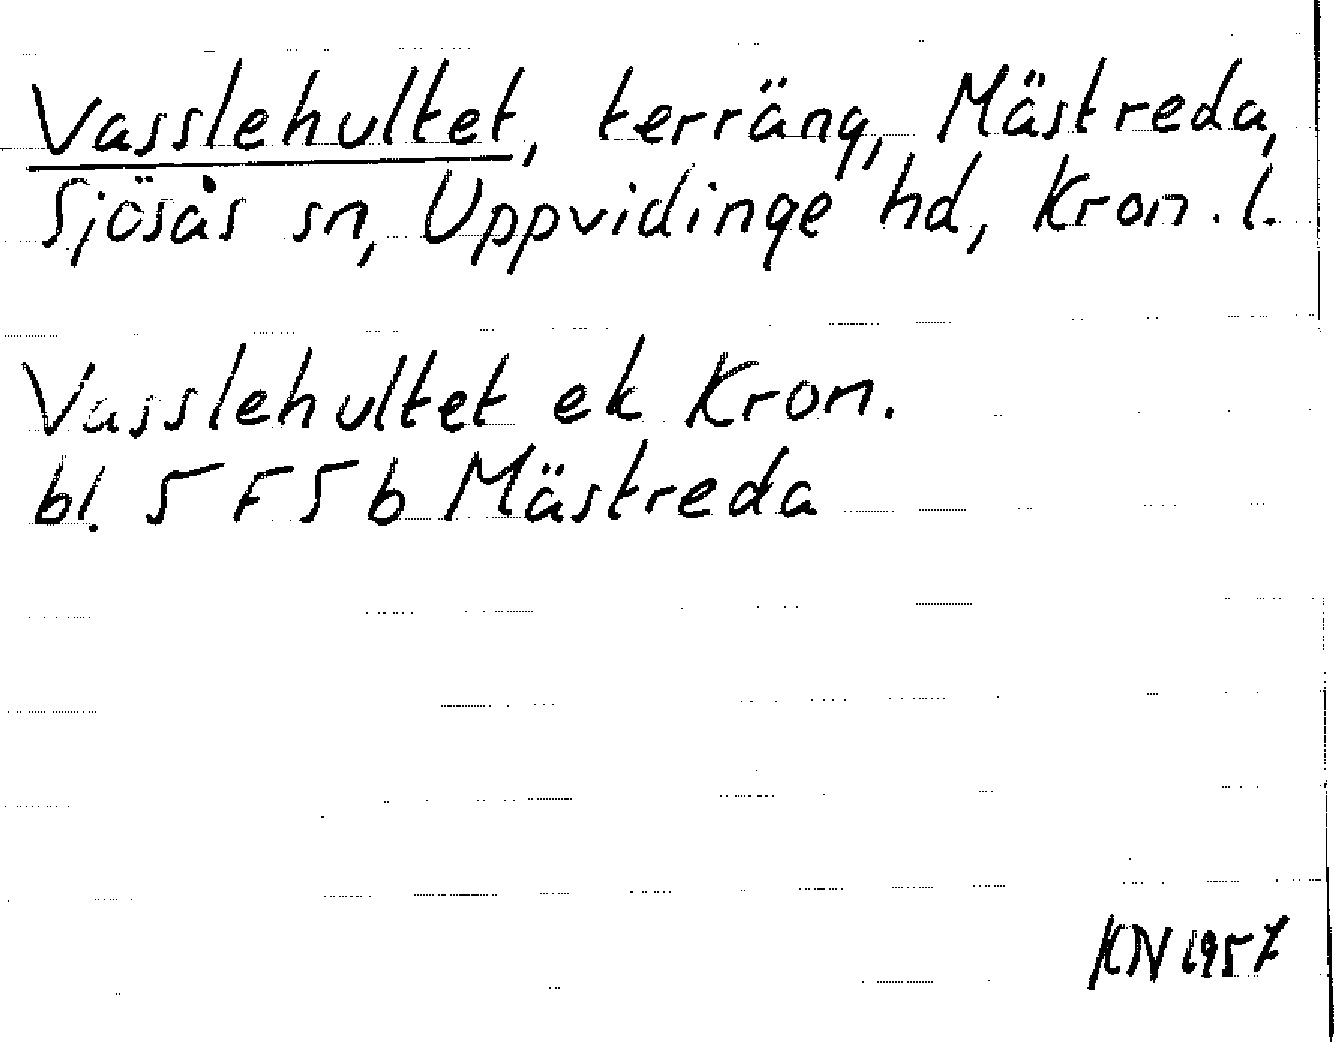 Vasslehultet, terräng, Mästreda,
Sjösås sn, Uppvidinge hd, Kron. l.
Vasslehultet ek Kron.
bl. 5 F 5 b Mästreda
KN 1957